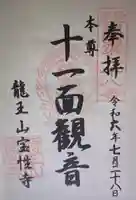 奉拝
令和六年七月二十八日
本尊
十一面観音
龍王山宝性寺